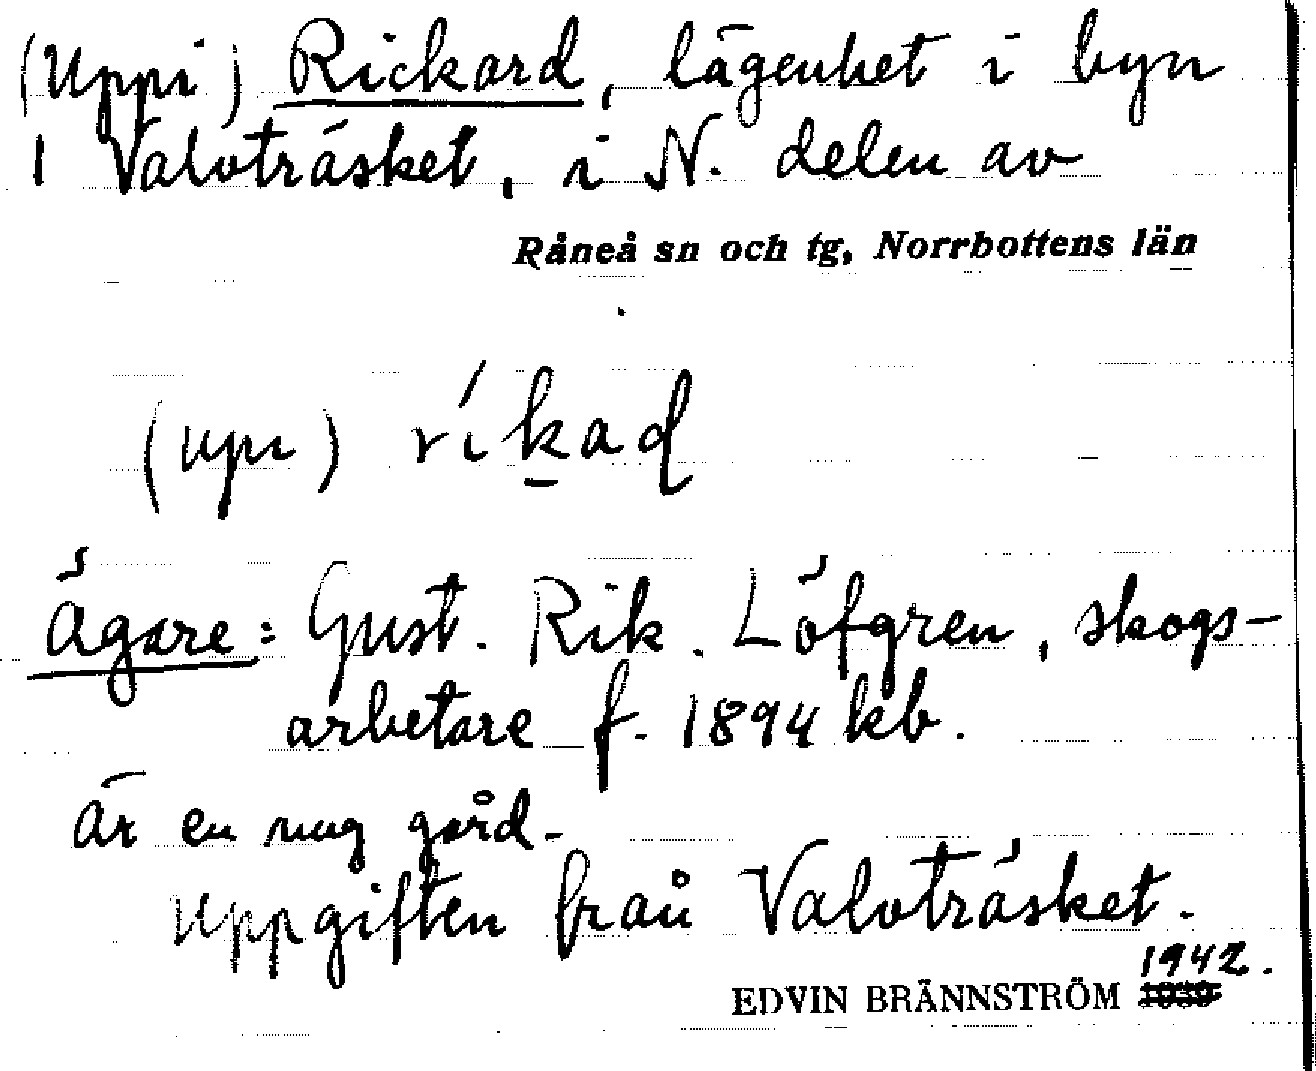 (Uppi) Rickard, lägenhet i byn
1 Valvträsket, i N. delen av
Råneå sn och tg, Norrbottens län
(upi) ríkad
Ägare: Gust. Rik. Löfgren, skogs-
arbetare f. 1894 kb.
är en nug gård-
uppgiften från Valvträsket.
1942.
EDVIN BRÄNNSTRÖM 1939